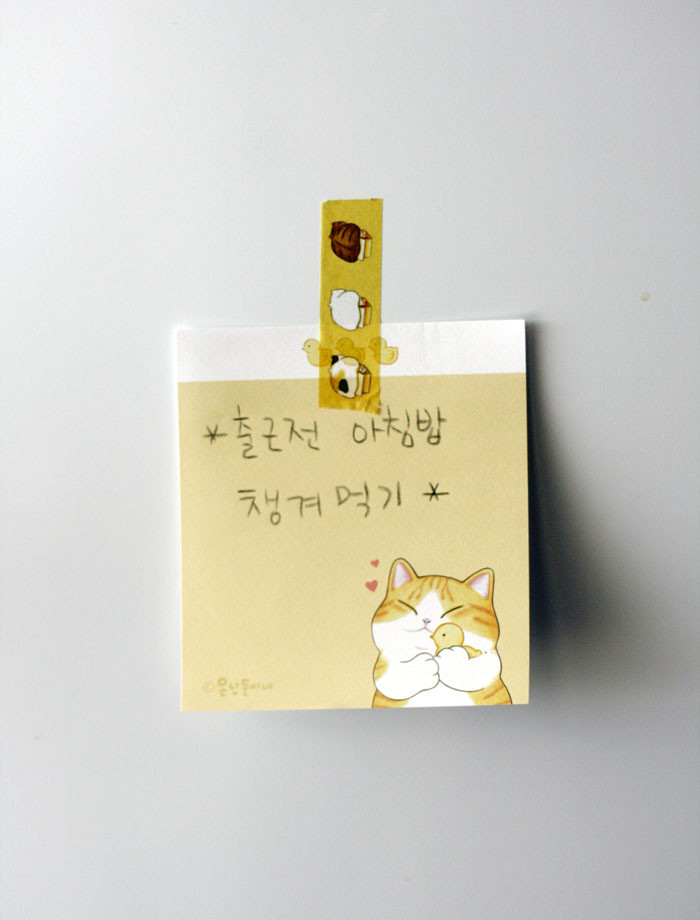 *출근전 아침밥
챙겨먹기*
©문난동이네